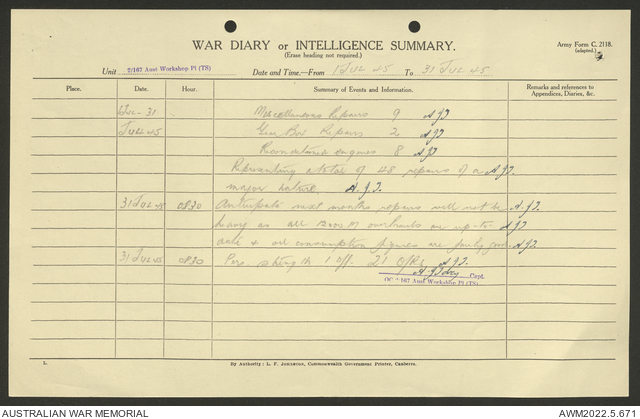 WAR DIARY or INTELLIGENCE SUMMARY.
(Erase heading not required.)
Army Form C. 2118.
(adapted.)
Unit 2/167 Aust Workshop Pl (TS)
Date and Time.—From 1 JUL 45 To 31 JUL 45
Place. Date. Hour. Summary of Events and Information. Remarks and references to Appendices, Diaries, &c.
1 JUL - 31 Miscellaneous Repairs 9 A.J.I.
JUL 45 Gear Box Repairs 2 A.J.I.
Reconditioned engines 8 A.J.I.
Representing a total of 48 repairs of a A.J.I.
major nature. A.J.I.
31 JUL 45 0830 Anticipate next months repairs will not be A.J.I.
heavy as all 12000 M overhauls are up-to- A.J.I.
date & oil consumption figures are fairly good. A.J.I.
31 JUL 45 0830 Pers. strength 1 Off. 21 O/Rs A.J.I.
Capt.
OC 2/167 Aust Workshop Pl (TS)
L. By Authority: L. F. JOHNSTON, Commonwealth Government Printer, Canberra.
AUSTRALIAN WAR MEMORIAL
AWM2022.5.671